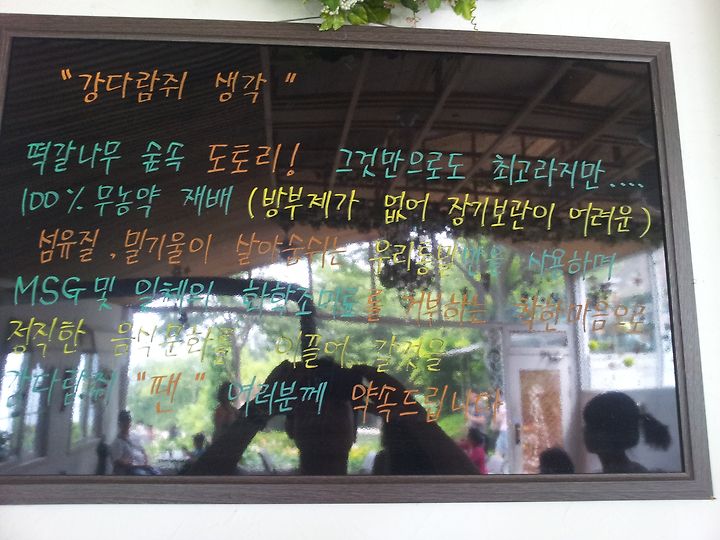 "강다람쥐 생각"
떡갈나무 숲속 도토리! 그것만으로도 최고라지만....
100% 무농약 재배 (방부제가 없어 장기보관이 어려운)
섬유질, 밀기울이 살아숨쉬는 우리통밀만을 사용하며
MSG 및 일체의 화학조미료를 거부하는 착한마음으로
정직한 음식문화를 이끌어 갈것을
강다람쥐 "팬" 여러분께 약속드립니다